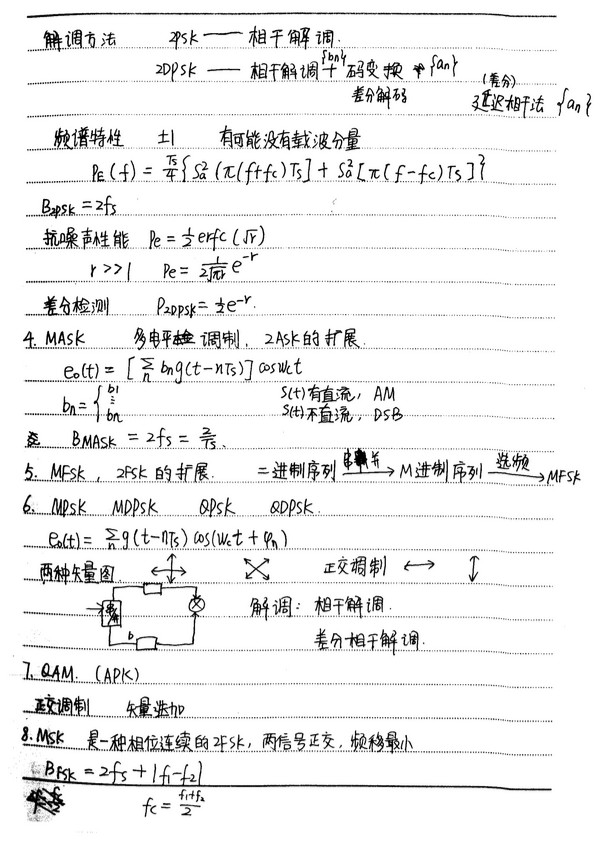 解调方法 2PSK —— 相干解调.
2DPSK —— 相干解调 + {bn} 码变换 → {an}
差分解码
(差分)
延迟相干法 {an}
频谱特性 ±1 有可能没有载波分量
PE(f) = Ts/4 {Sa²(π(f+fc)Ts] + Sa²[π(f-fc)Ts]}
B2PSK = 2fs
抗噪声性能 Pe = 1/2 erfc(√r)
r >> 1 Pe = 1/(2√πr) e^-r
差分检测 P2DPSK = 1/2 e^-r.
4. MASK 多电平 调制, 2ASK的扩展.
eo(t) = [Σn bng(t-nTs)] coswct
bn = { b1 ⋮ bn
S(t)有直流, AM
S(t)不直流, DSB
BMASK = 2fs = 2/Ts.
5. MFSK, 2FSK的扩展. 二进制序列 串并→ M进制序列 选频→ MFSK
6. MPSK MDPSK QPSK QDPSK.
eo(t) = Σn g(t-nTs) cos(wct + φn)
两种矢量图 正交调制 ↔ ↕
解调: 相干解调.
b
差分相干解调.
7. QAM. (APK)
正交调制 矢量迭加
8. MSK 是一种相位连续的2FSK, 两信号正交, 频移最小
BFSK = 2fs + |f1-f2|
fc = (f1+f2)/2